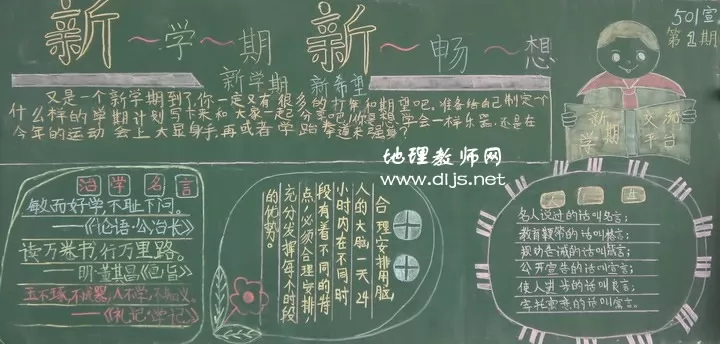 新~学~期 新~畅~想
501宣
第1期
新学期 新希望
又是一个新学期到了,你一定又有很多的打算和期望吧,准备给自己制定个
什么样的学期计划 写下来和大家一起分享吧!你是想学会一样乐器,还是在
今年的运动会上大显身手,再或者学跆拳道来强身?
新学期
交流平台
地理教师网
www.dljs.net
治学名言
敏而好学,不耻下问。
——《论语·公冶长》
读万卷书,行万里路。
——明·董其昌《画旨》
玉不琢,不成器,人不学,不知义。
——《礼记·学记》
合理安排用脑,
人的大脑一天24
小时内在不同时
段有着不同的特
点,必须合理安排,
充分发挥每个时段
的优势。
名人说过的话叫名言;
教育鞭策的话叫格言;
规劝告诫的话叫箴言;
公开宣告的话叫宣言;
使人进步的话叫良言;
寄托寓意的话叫寓言。